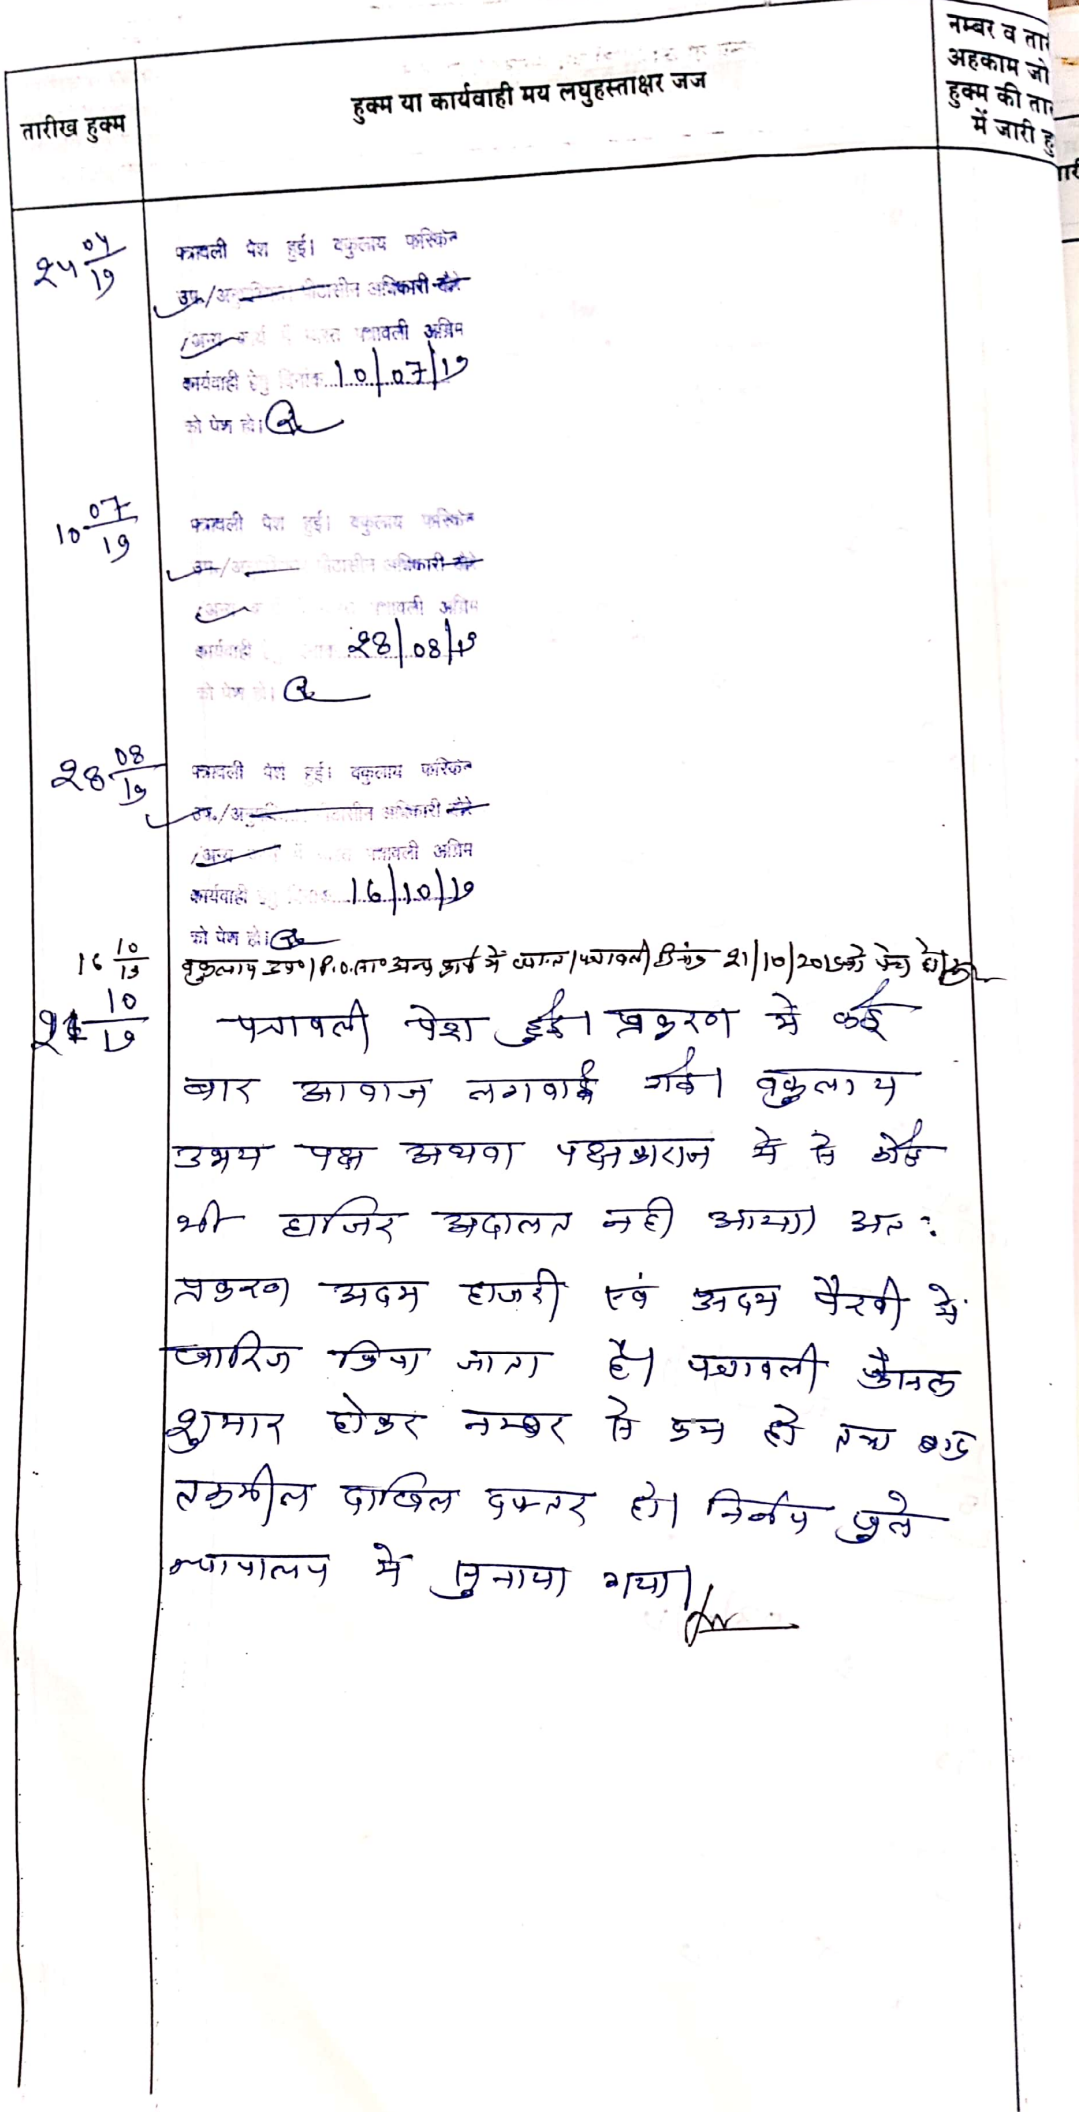 तारीख हुक्म
हुक्म या कार्यवाही मय लघुहस्ताक्षर जज
नम्बर व तारी
अहकाम जो
हुक्म की ता
में जारी हु
24 04/19
पत्रावली पेश हुई। वकुलाय फरिकेन
उप./ पीठासीन अधिकारी दौरे
/अन्य कार्य में व्यस्त पत्रावली अग्रिम
कार्यवाही हेतु दिनांक 10/07/19
को पेश हो।
10 07/19
पत्रावली पेश हुई। वकुलाय फरिकेन
उप./ पीठासीन अधिकारी दौरे
/अन्य पत्रावली अग्रिम
कार्यवाही 28/08/19
को पेश हो।
28 08/19
पत्रावली पेश हुई। वकुलाय फरिकेन
उप./ पीठासीन अधिकारी दौरे
/अन्य पत्रावली अग्रिम
कार्यवाही 16/10/19
को पेश हो।
16 10/19
वकुलाय उप०। P.O.सा० अन्य कार्य में व्यस्त। पत्रावली दिनांक 21/10/2019 को पेश हो।
21 10/19
पत्रावली पेश हुई। प्रकरण में कई
बार आवाज लगवाई गई। वकुलाय
उभय पक्ष अथवा पक्षकारान में से कोई
भी हाजिर अदालत नही आया। अत:
प्रकरण अदम हाजरी एवं अदम पैरवी में
खारिज किया जाता है। पत्रावली फैसल
शुमार होकर नम्बर से कम हो तथा बाद
तकमील दाखिल दफ्तर हो। निर्णय खुले
न्यायालय में सुनाया गया।